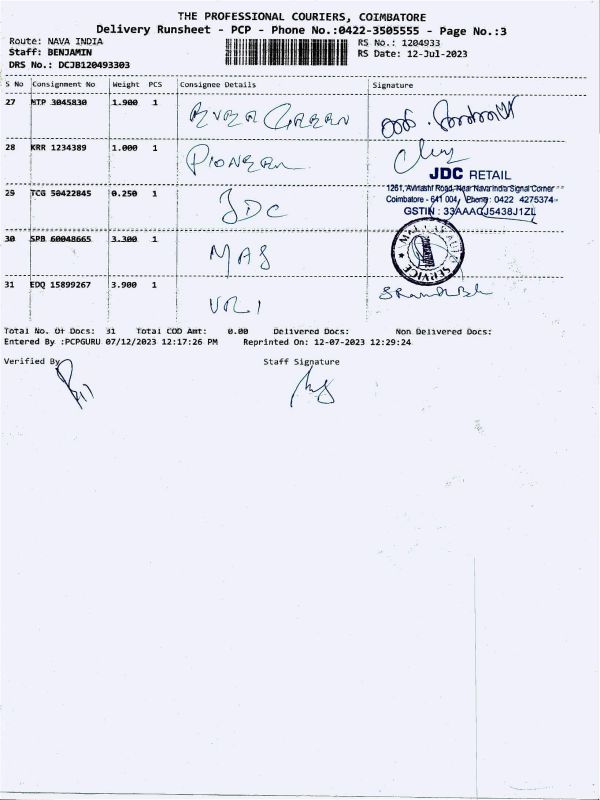 THE PROFESSIONAL COURIERS, COIMBATORE
Delivery Runsheet - PCP - Phone No.:0422-3505555 - Page No.:3
Route: NAVA INDIA
RS No.: 1204933
Staff: BENJAMIN
RS Date: 12-Jul-2023
DRS No.: DCJB120493303
S No Consignment No Weight PCS Consignee Details Signature
27 MTP 3045830 1.900 1 EVER GREEN
28 KRR 1234389 1.000 1 PIONEER
JDC RETAIL
1261, Avinashi Road, Near Nava India Signal Corner
29 TCG 50422845 0.250 1 JDC
Coimbatore - 641 004, Phone: 0422 4275374
GSTIN : 33AAACJ5438J1ZL
30 SPB 60048665 3.300 1 MAS
31 EDQ 15899267 3.900 1 VRI
Total No. Of Docs: 31 Total COD Amt: 0.00 Delivered Docs: Non Delivered Docs:
Entered By :PCPGURU 07/12/2023 12:17:26 PM Reprinted On: 12-07-2023 12:29:24
Verified By
Staff Signature